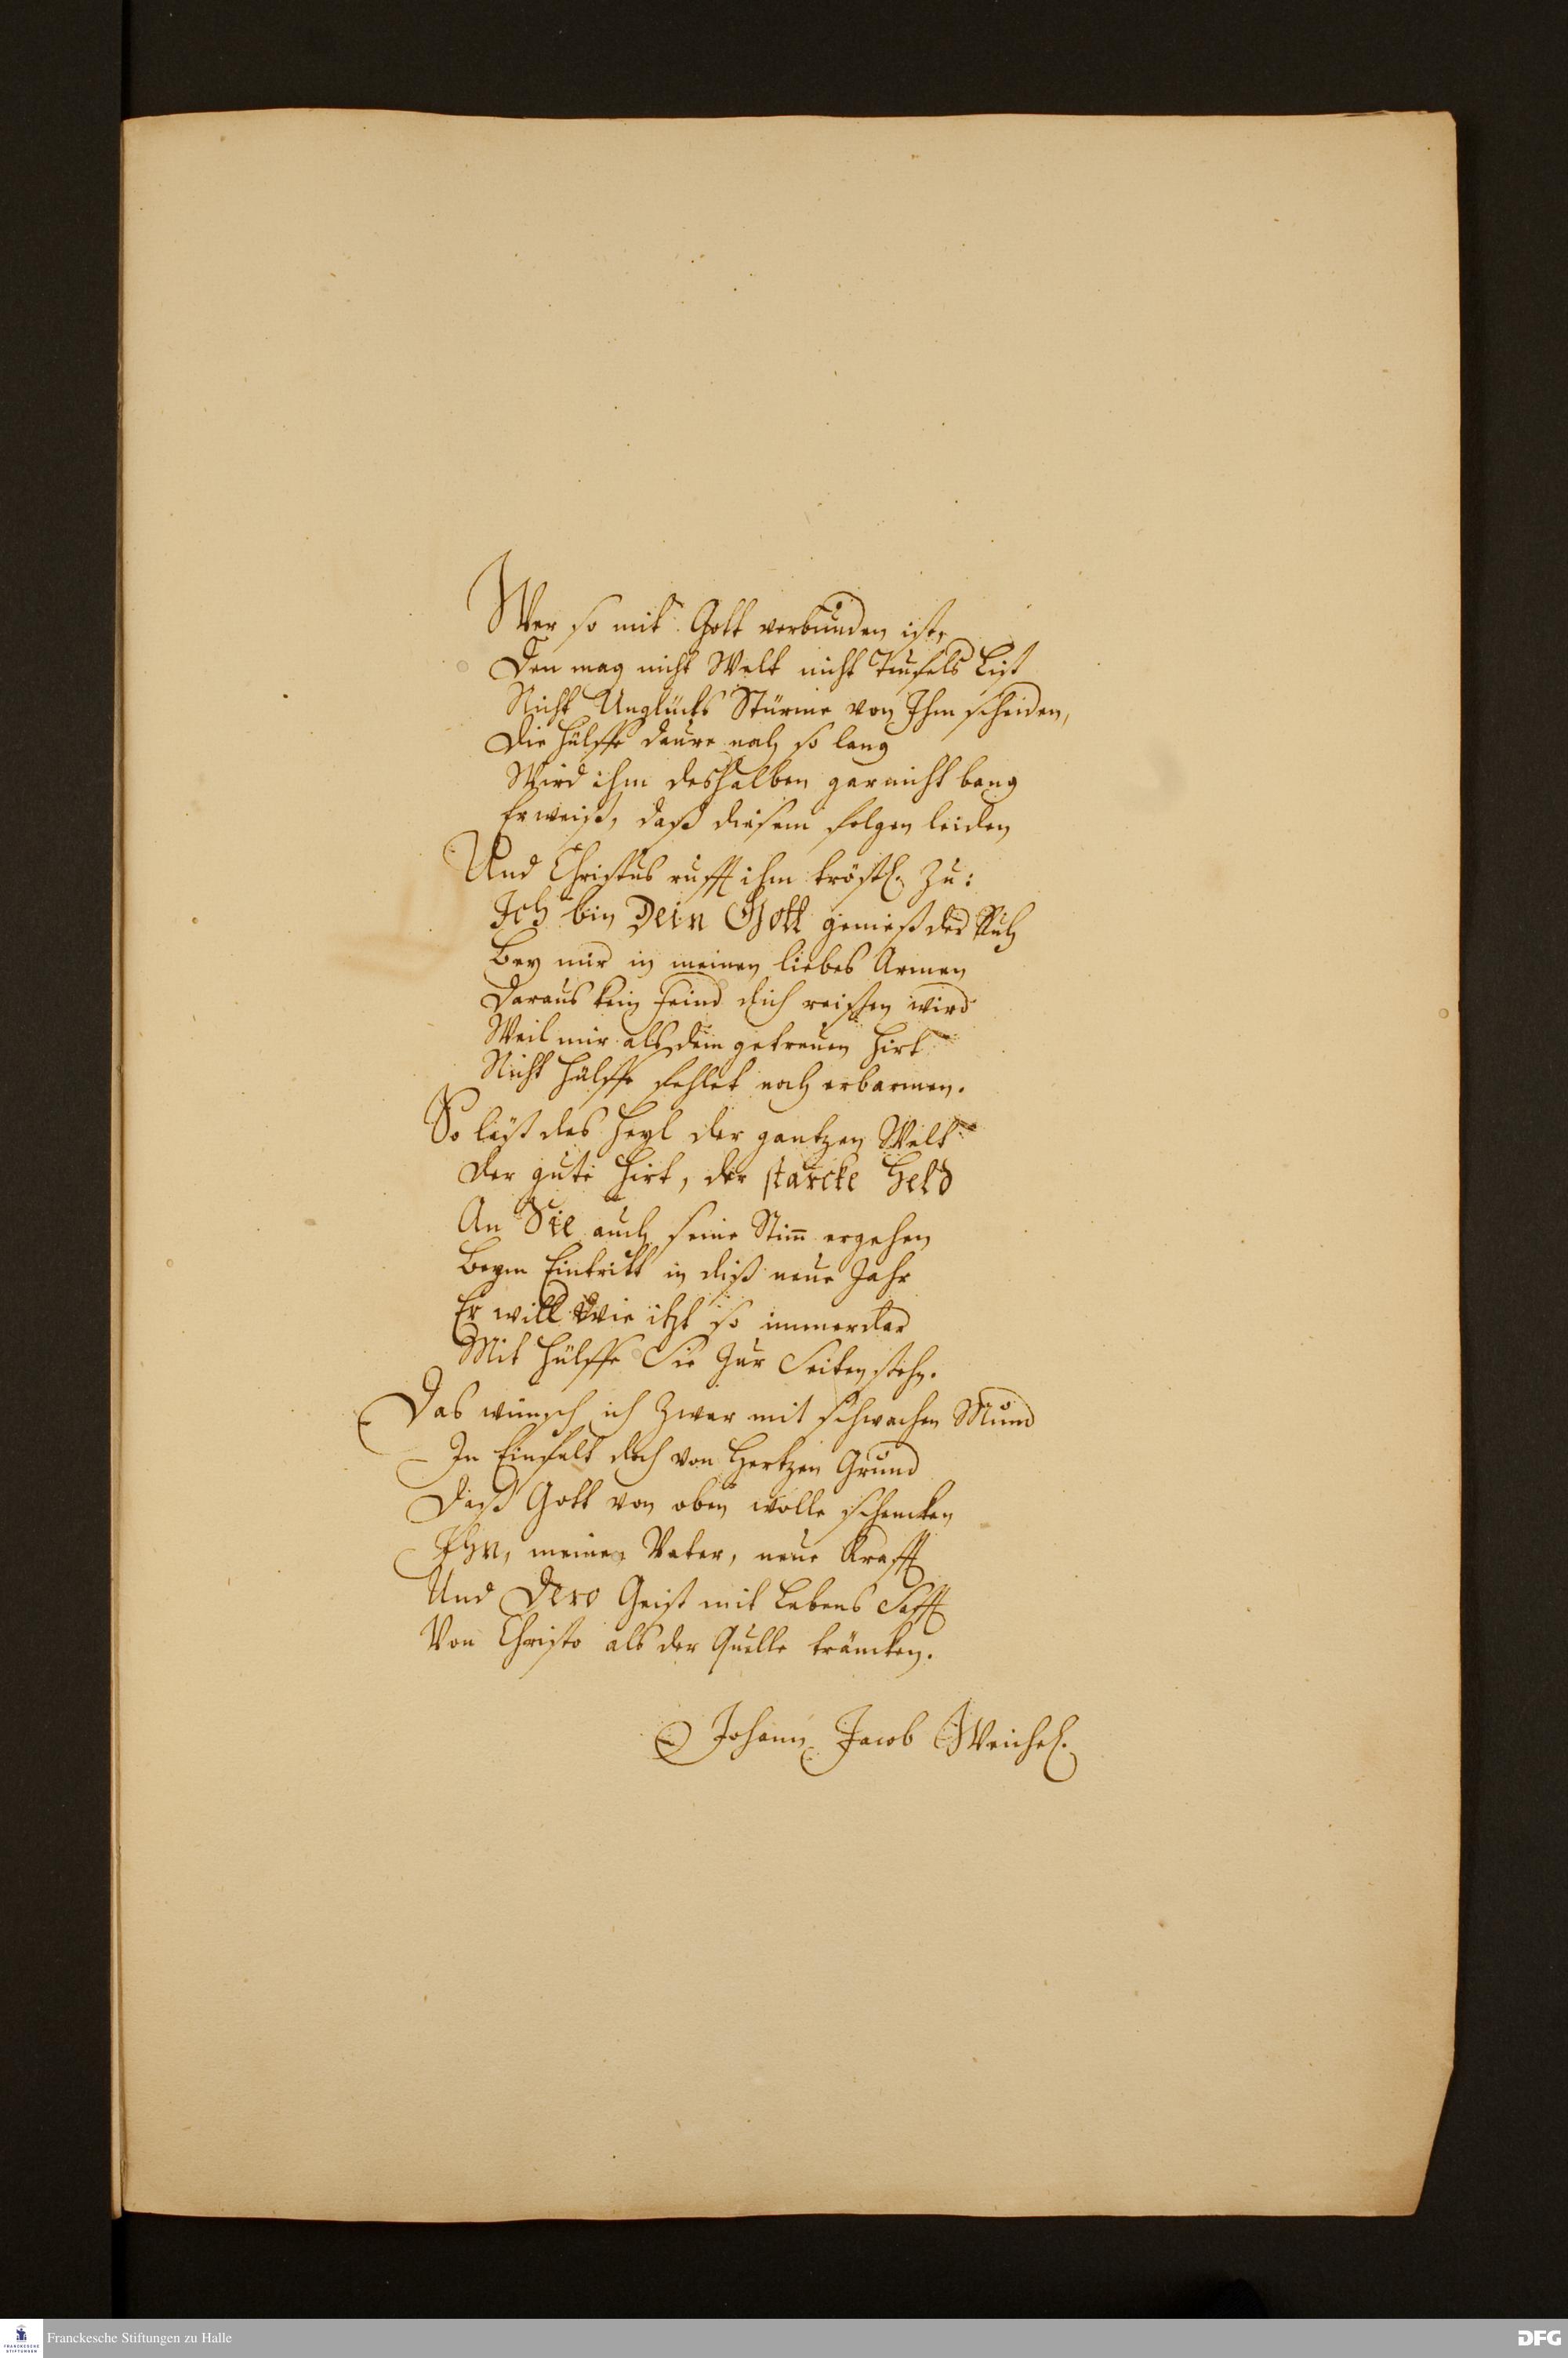 Wer so mit Gott verbunden ist,
Den mag nicht Welt nicht Teufels List
Nicht Unglücks Stürme von Ihm scheiden,
Die Hülffe daure noch so lang
Wird ihm deshalben gar nicht bang
Er weiß, daß diesem folgen leiden
Und Christus rufft ihm tröstl. zu:
Ich bin Dein Gott genieß der Ruh
Bey mir in meinen liebes Armen
Daraus kein Feind dich reissen wird
Weil mir als dem getreuen Hirt
Nicht Hülffe fehlet noch erbarmen.
So läst das Heyl der gantzen Welt
Der gute Hirt, der starcke Held
An Sie auch seine Stim̄ ergehen
Beym Eintritt in diß neue Jahr
Er will wie itzt so immerdar
Mit Hülffe Sie zur Seiten stehn.
Das wünsch ich zwar mit schwachen Mund
In Einfalt doch von Hertzen Grund
Daß Gott von oben wolle schencken
Ihn, meinen Vater, neue Krafft
Und Dero Geist mit Lebens Safft
Von Christo als der Quelle träncken.
Johann Jacob Weichel.
Franckesche Stiftungen zu Halle
FRANCKESCHE STIFTUNGEN
DFG